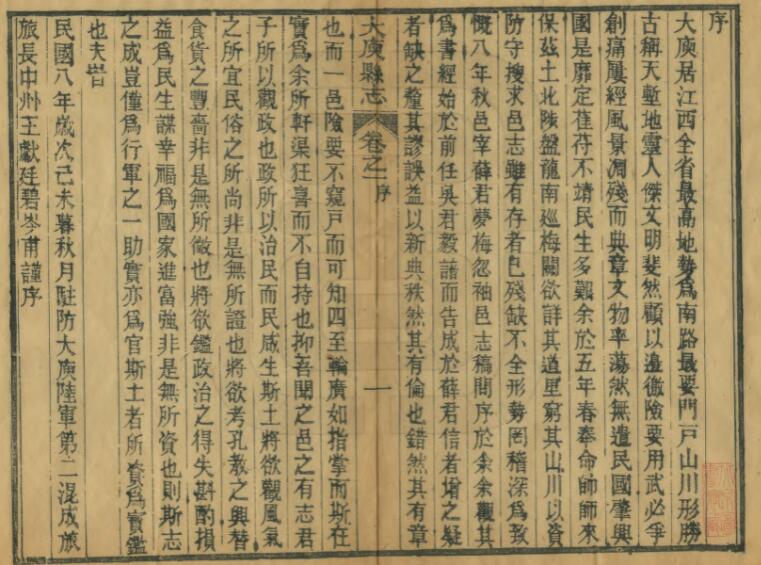 序
大庾居江西全省最高地勢爲南路最要門戶山川形勝
古稱天塹地靈人傑文明斐然顧以邊徼險要用武必爭
創痛屢經風景凋殘而典章文物率蕩然無遺民國肇興
國是靡定萑苻不靖民生多艱余於五年春奉命師師來
保茲土北陟盤龍南巡梅關欲詳其道里窮其山川以資
防守搜求邑志雖有存者已殘缺不全形勢罔稽深爲致
慨八年秋邑宰薛君夢梅忽袖邑志稿問序於余余觀其
爲書經始於前任吳君毅諳而告成於薛君信者增之疑
者缺之釐其謬誤益以新典秩然其有倫也錯然其有章
大庾縣志 卷之一 序 一
也而一邑險要不窺戶而可知四至輪廣如指掌而斯在
實爲余所軒渠狂喜而不自持也抑吾聞之邑之有志君
子所以觀政也政所以治民而民咸生斯土將欲觀風氣
之所宜民俗之所尚非是無所證也將欲考孔教之興替
食貨之豐嗇非是無所徵也將欲鑑政治之得失斟酌損
益爲民生謀幸福爲國家進富強非是無所資也則斯志
之成豈僅爲行軍之一助實亦爲官斯土者所資爲實鑑
也夫峕
民國八年歲次己未暮秋月駐防大庾陸軍第二混成旅
旅長中州王獻廷碧岑甫謹序